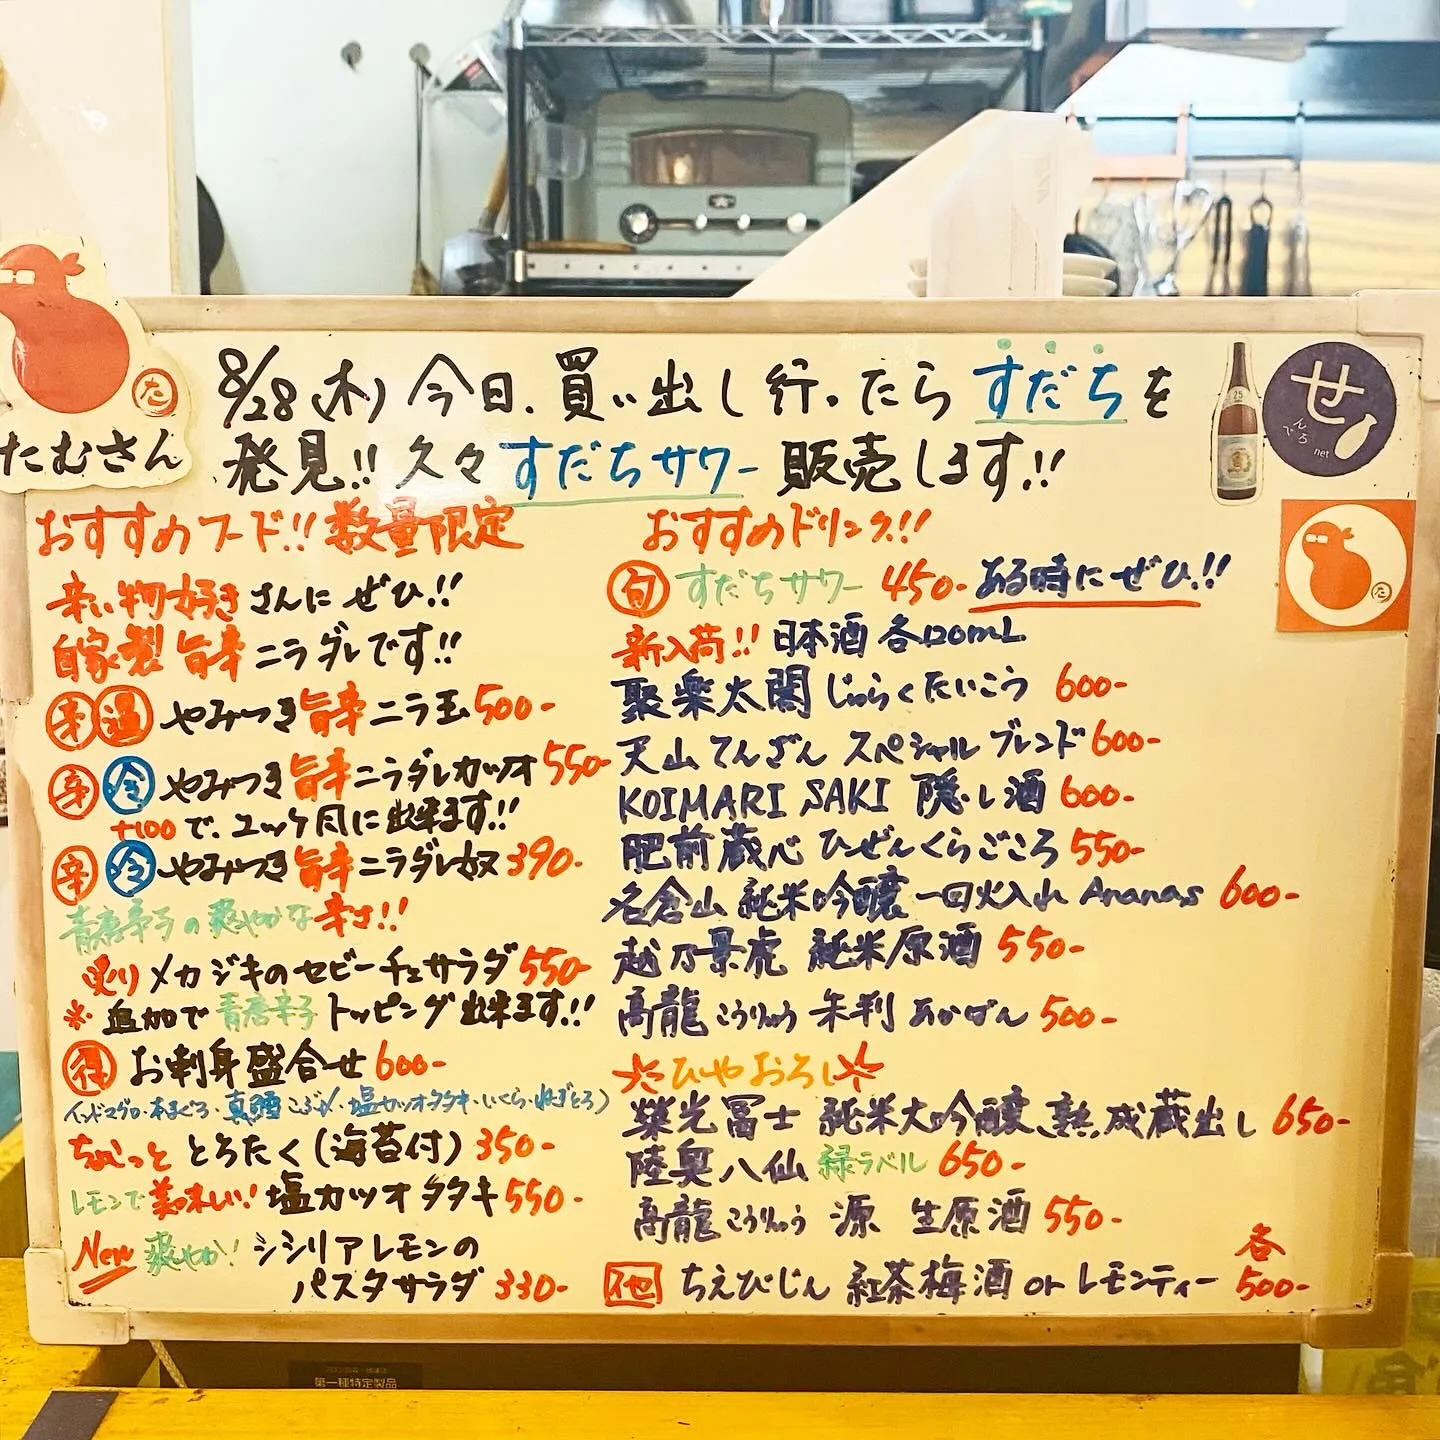 8/28(木) 今日、買い出し行ったら すだちを
発見!! 久々 すだちサワー 販売します!!
たむさん
た
せ
んべろ
net
25
おすすめフード!! 数量限定
辛い物好きさんに ぜひ!!
自家製 旨辛 ニラダレです!!
辛 温 やみつき旨辛ニラ玉 500-
辛 冷 やみつき旨辛ニラダレカツオ 550-
+100で、ユッケ風に出来ます!!
辛 冷 やみつき旨辛ニラダレ奴 390-
青唐辛子の爽やかな辛さ!!
炙りメカジキのセビーチェサラダ 550-
※追加で青唐辛子トッピング出来ます!!
得 お刺身盛合せ 600-
インドマグロ・本まぐろ・真鯛こぶ〆・塩カツオタタキ・いくら・ねぎとろ)
ちょっと とろたく(海苔付) 350-
レモンで美味しい! 塩カツオタタキ 550-
New 爽やか! シシリアレモンの
パスタサラダ 330-
おすすめドリンク!!
旬 すだちサワー 450- ある時にぜひ!!
新入荷!! 日本酒 各120mL
聚楽太閤 じゅらくたいこう 600-
天山 てんざん スペシャルブレンド 600-
KOIMARI SAKI 隠し酒 600-
肥前蔵心 ひぜんくらごころ 550-
名倉山 純米吟醸 一回火入れ Ananas 600-
越乃景虎 純米原酒 550-
高龍 こうりゅう 朱判 あかばん 500-
ひやおろし
榮光冨士 純米大吟醸、熟成蔵出し 650-
陸奥八仙 緑ラベル 650-
高龍 こうりゅう 源 生原酒 550-
他 ちえびじん 紅茶梅酒 or レモンティー 各500-
第一種特定製品